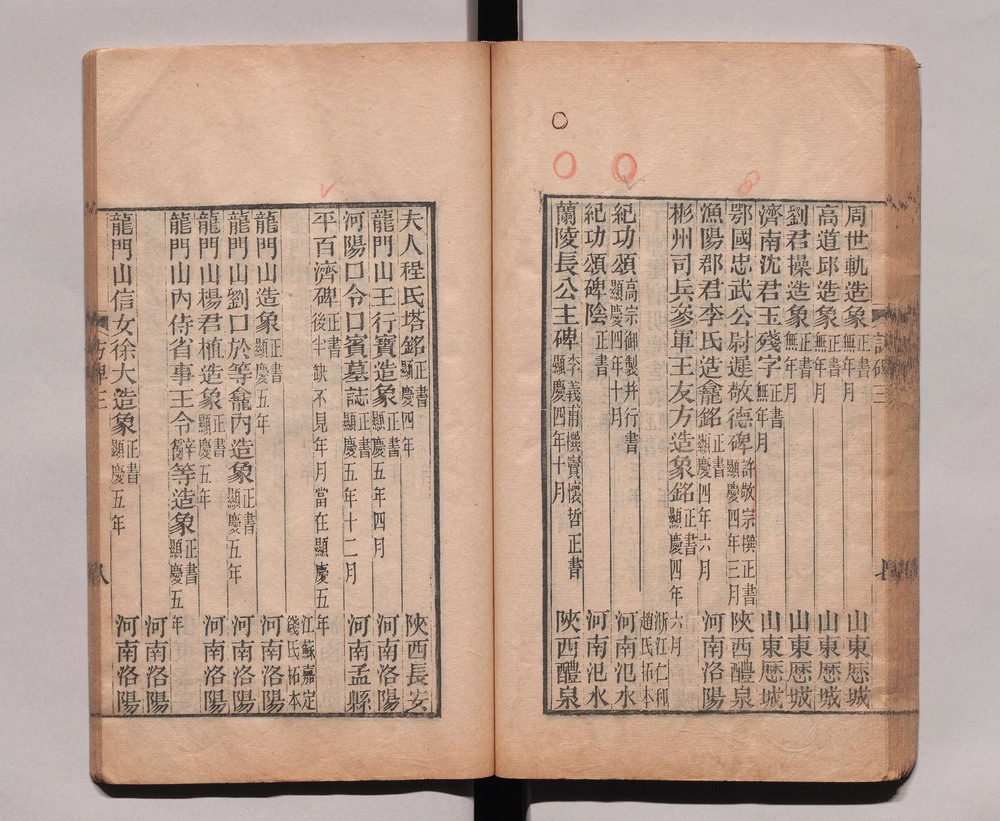 周世軌造象正書無年月 山東歷城
高道邱造象正書無年月 山東歷城
劉君操造象正書無年月 山東歷城
濟南沈君玉殘字正書無年月 山東歷城
鄂國忠武公尉遲敬德碑許敬宗撰正書顯慶四年三月 陝西醴泉
漁陽郡君李氏造龕銘正書顯慶四年六月 河南洛陽
彬州司兵參軍王友方造象銘正書顯慶四年六月
浙江仁和趙氏拓本
紀功頌高宗御製并行書顯慶四年十月 河南汜水
紀功頌碑陰正書 河南汜水
蘭陵長公主碑李義甫撰竇懷哲正書顯慶四年十月 陝西醴泉
夫人程氏塔銘正書顯慶四年 陝西長安
龍門山王行寶造象正書顯慶五年四月 河南洛陽
河陽口令口賓墓誌正書顯慶五年十二月 河南孟縣
平百濟碑正書後半缺不見年月當在顯慶五年
江蘇嘉定錢氏拓本
龍門山造象正書顯慶五年 河南洛陽
龍門山劉口於等龕內造象正書顯慶五年 河南洛陽
龍門山楊君植造象正書顯慶五年 河南洛陽
龍門山內侍省事王令辭等造象正書顯慶五年
河南洛陽
龍門山信女徐大造象正書顯慶五年 河南洛陽
方碑三
八